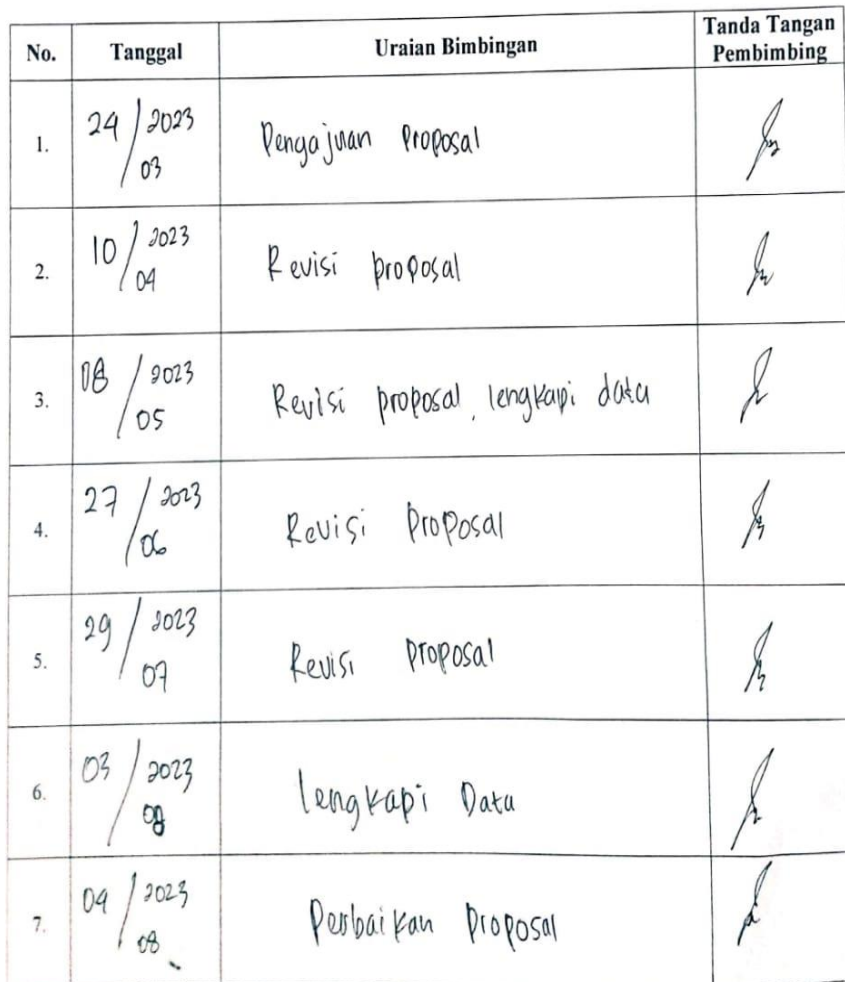 No. Tanggal Uraian Bimbingan Tanda Tangan Pembimbing
1. 24/2023 03 Pengajuan Proposal
2. 10/2023 04 Revisi proposal
3. 08/2023 05 Revisi proposal, lengkapi data
4. 27/2023 06 Revisi Proposal
5. 29/2023 07 Revisi Proposal
6. 03/2023 08 lengkapi Data
7. 04/2023 08 Perbaikan Proposal